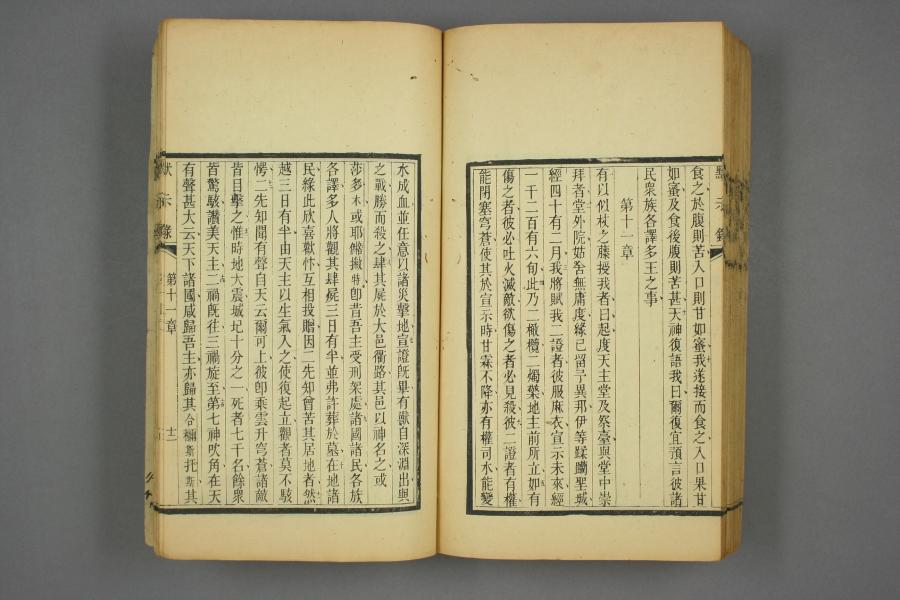 食之於腹則苦入口則甘如蜜我遂接而食之入口果甘
如蜜及食後腹則苦甚天神復語我曰爾復宜預言彼諸
民衆族各譯多王之事
第十一章
有以似杖之䕨授我者曰起度天主堂及祭臺與堂中崇
拜者堂外院姑舍無庸度緣已留予異那伊等蹂躪聖城
經四十有二月我將賦我二證者彼服麻衣宣示未來經
一千二百有六旬此乃二橄欖二燭檠地主前所立如有
傷之者彼必吐火滅敵欲傷之者必見殺彼二證者有權
能閉塞穹蒼使其於宣示時甘霖不降亦有權司水能變
水成血並任意以諸災擊地宣證旣畢有獸自深淵出與
之戰勝而殺之肆其屍於大邑衢路其邑以神名之或
莎多木或耶 撇特卽昔吾主受刑架處諸國諸民各族
各譯多人將觀其肆屍三日有半並弗許葬於墓在地諸
民緣此欣喜歡忭互相投贈因二先知曾苦其居地者然
越三日有半由天主以生氣入之使復起立觀者莫不駭
愕二先知聞有聲自天云爾可上彼卽乘雲升穹蒼諸敵
皆目擊之惟時地大震城圮十分之一死者七千名餘衆
皆驚駭讚美天主二禍旣往三禍旋至第七神吹角在天
有聲甚大云天下諸國咸歸吾主亦歸其合彌斯托斯其
默示錄
第十一章
十二